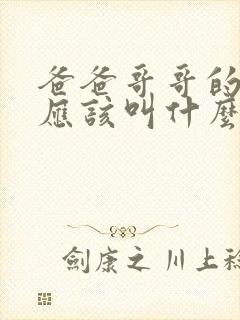 爸爸哥哥的
應該叫什麼
劍康之 川上